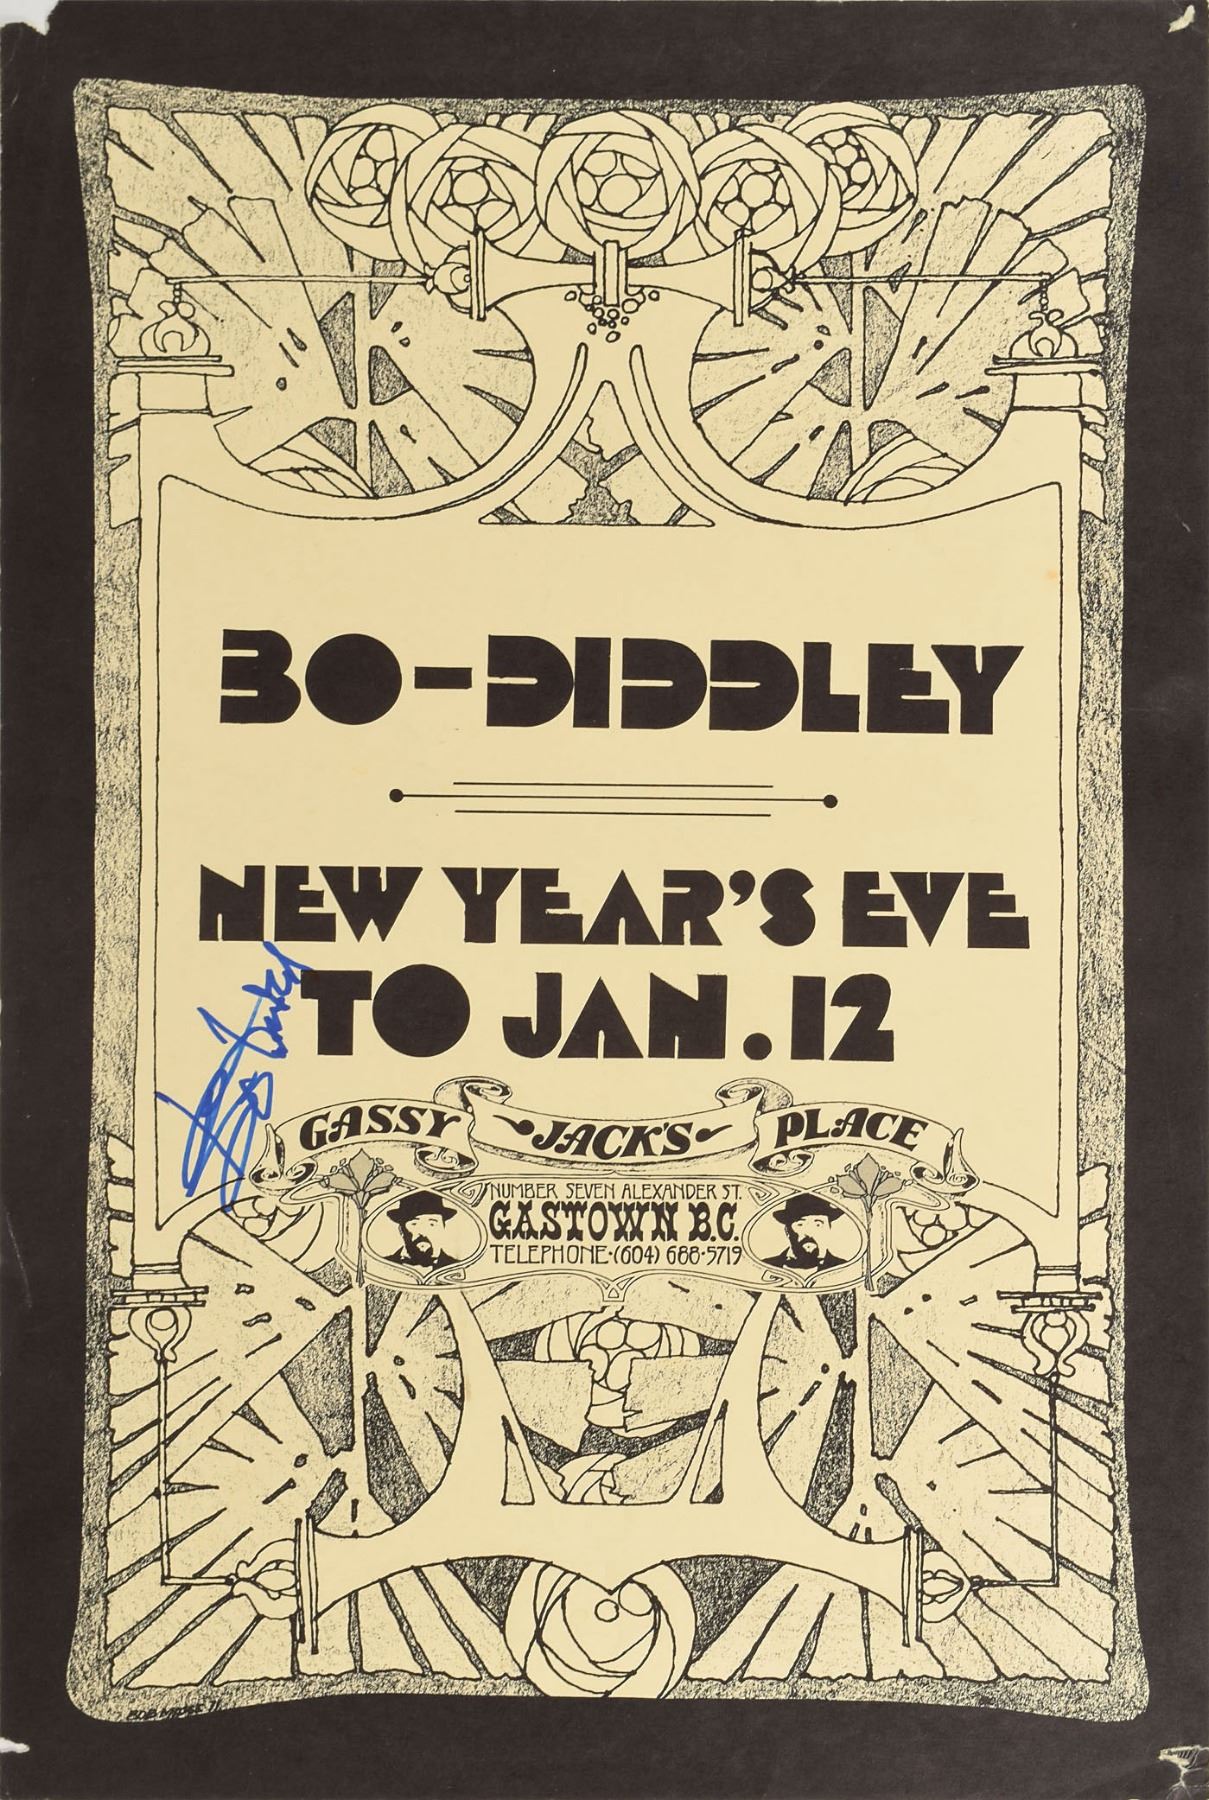 BO-DIDDLEY
NEW YEAR'S EVE
TO JAN. 12
GASSY JACK'S PLACE
NUMBER SEVEN ALEXANDER ST.
GASTOWN B.C.
TELEPHONE·(604) 688·5719